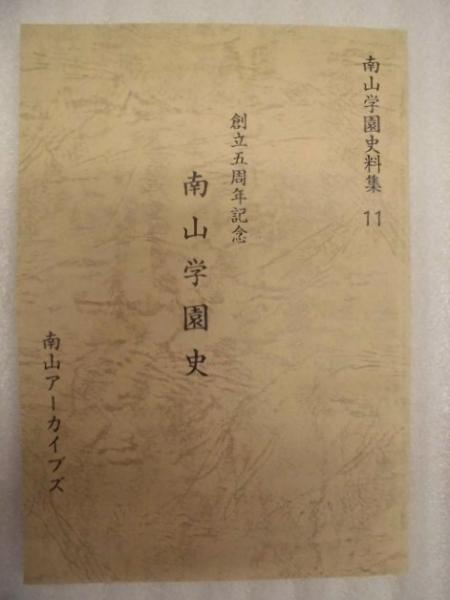 南山学園史料集 11
創立五周年記念
南山学園史
南山アーカイブズ